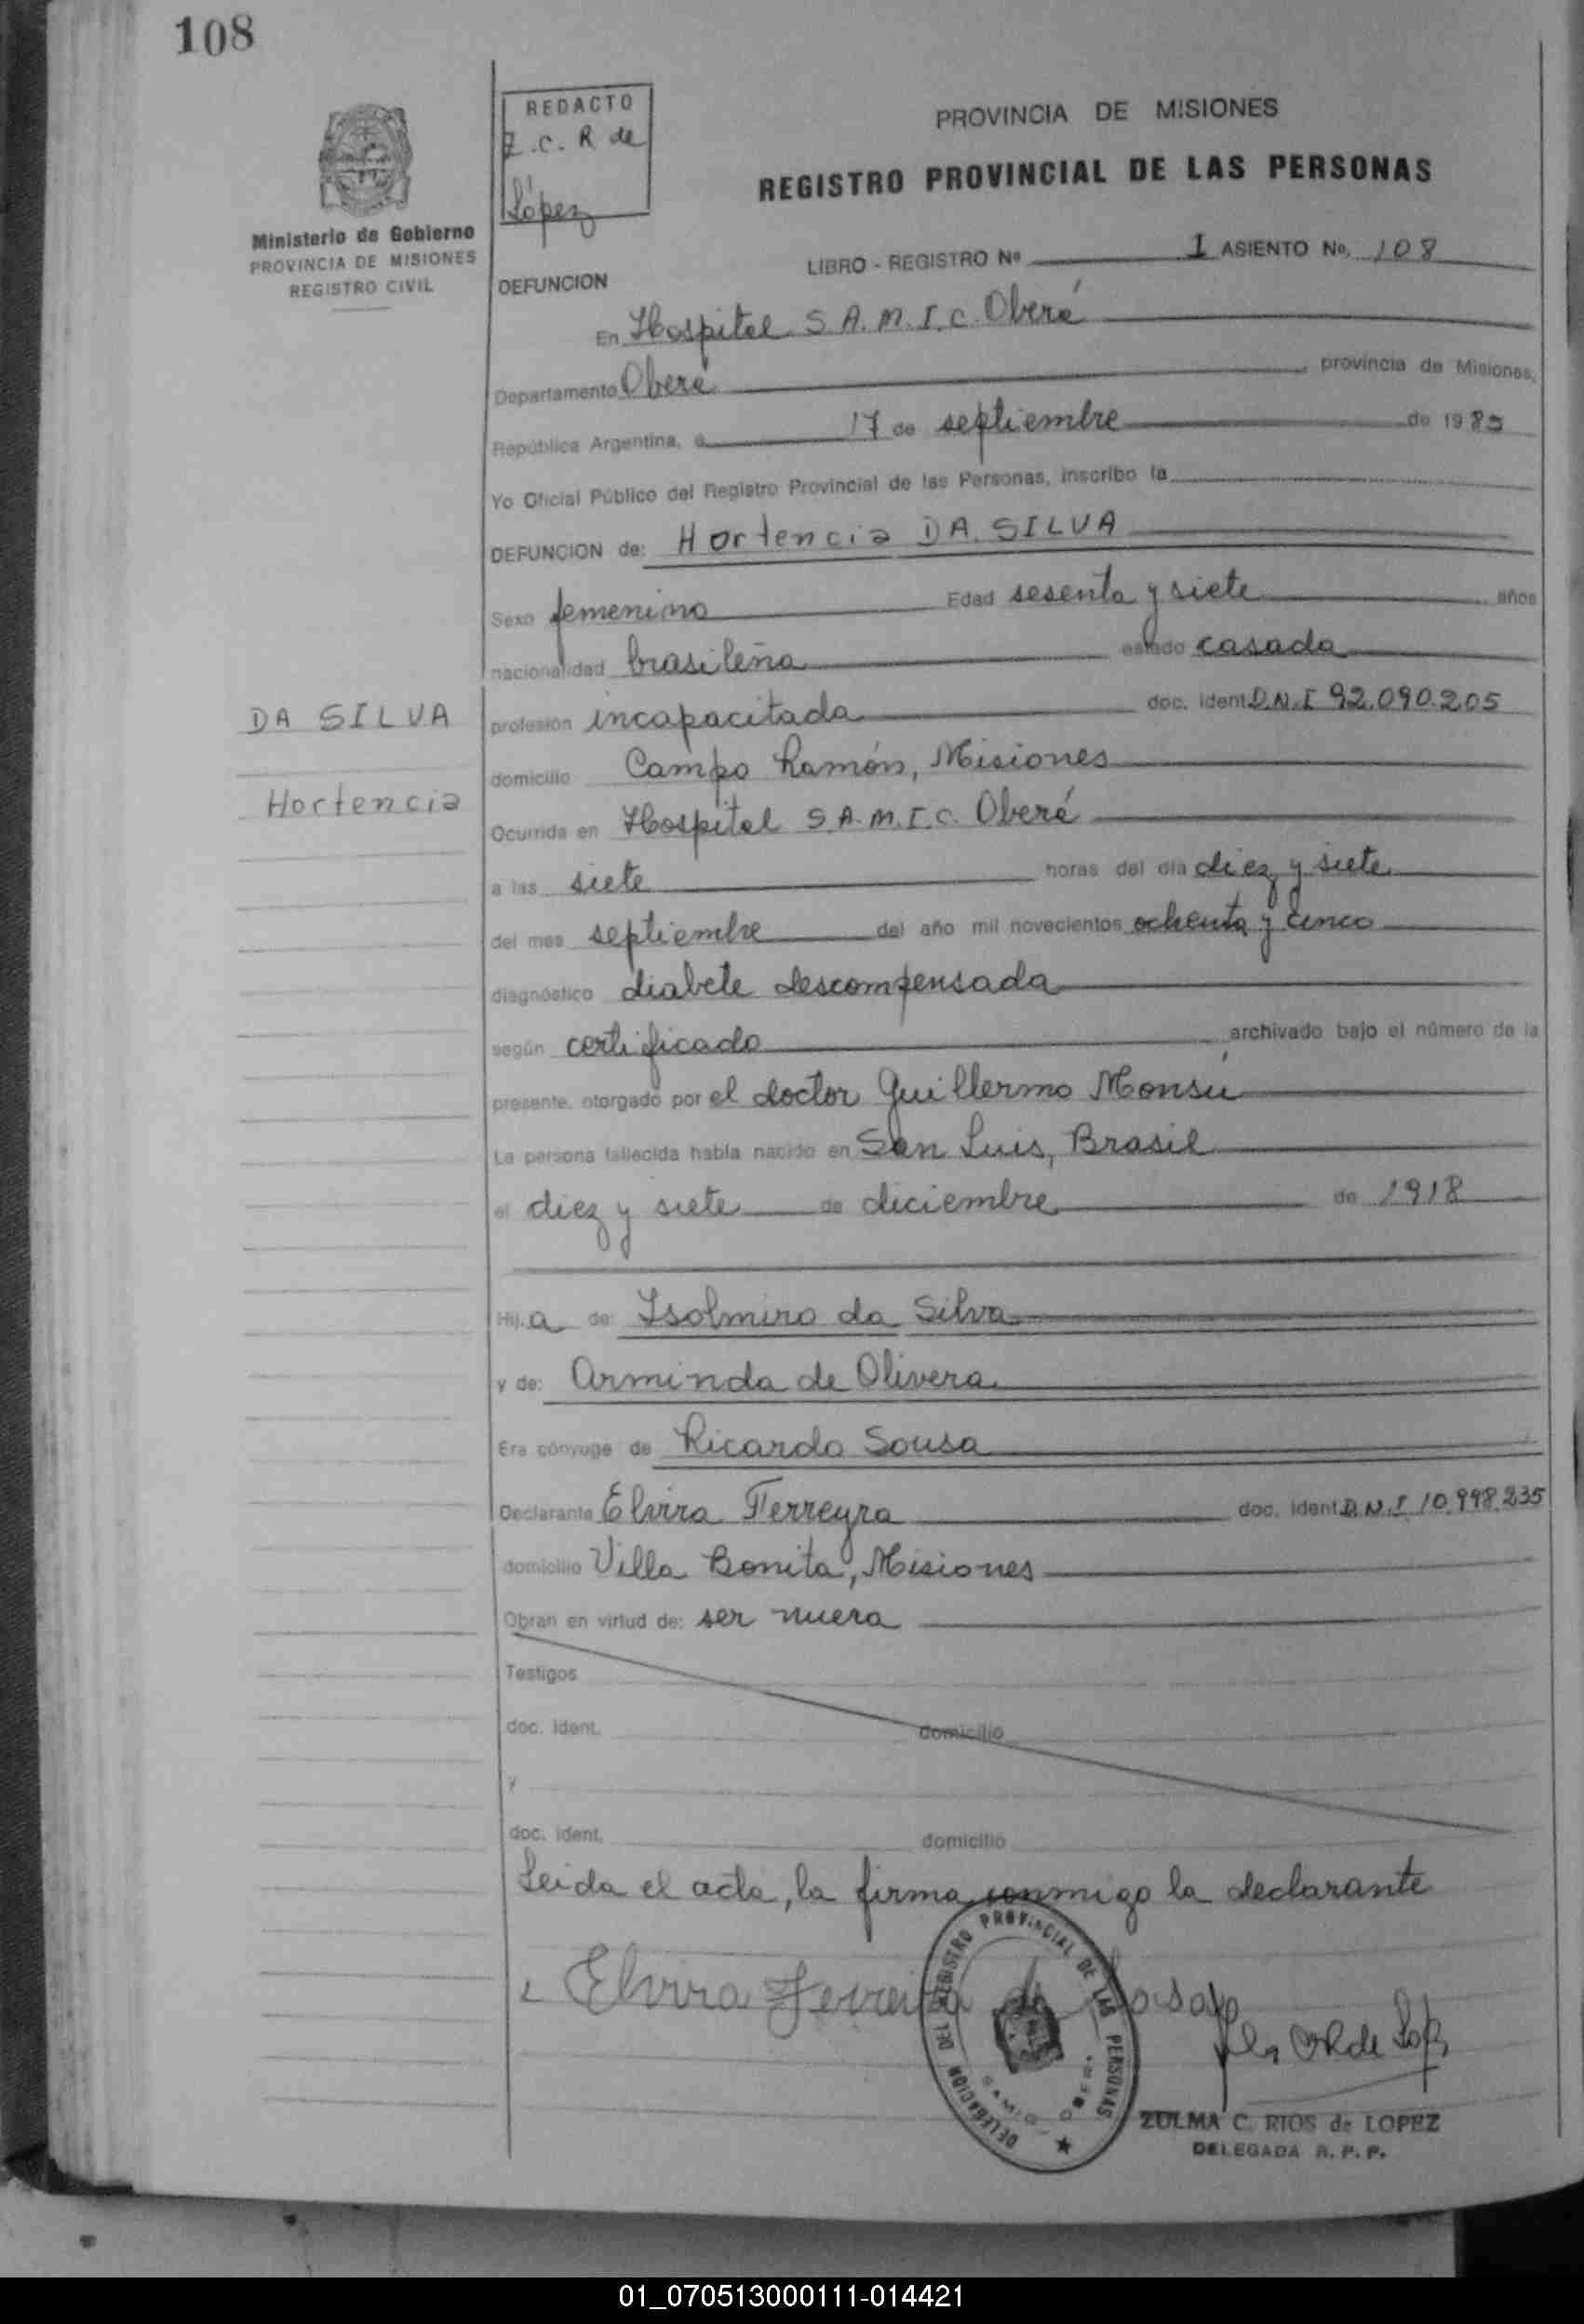 108
REDACTO
Z. C. R de
López
PROVINCIA DE MISIONES
REGISTRO PROVINCIAL DE LAS PERSONAS
Ministerio de Gobierno
PROVINCIA DE MISIONES
REGISTRO CIVIL
LIBRO - REGISTRO Nº I ASIENTO No. 108
DEFUNCION
En Hospital S.A.M.I.C. Oberá
Departamento Oberá, provincia de Misiones,
República Argentina, a 17 de septiembre de 1985
Yo Oficial Público del Registro Provincial de las Personas, inscribo la
DEFUNCION de: Hortencia DA SILVA
Sexo femenino Edad sesenta y siete años
nacionalidad brasileña estado casada
DA SILVA
Hortencia
profesión incapacitada doc. ident. D.N.I 92.090.205
domicilio Campo Ramón, Misiones
Ocurrida en Hospital S.A.M.I.C. Oberá
a las siete horas del día diez y siete
del mes septiembre del año mil novecientos ochenta y cinco
diagnóstico diabete descompensada
según certificado archivado bajo el número de la
presente, otorgado por el doctor Guillermo Monsú
La persona fallecida había nacido en San Luis, Brasil
el diez y siete de diciembre de 1918
Hij a de Isolmiro da Silva
y de: Arminda de Olivera
Era cónyuge de Ricardo Sousa
Declarante Elvira Ferreyra doc. ident. D.N.I. 10.998.235
domicilio Villa Bonita, Misiones
Obran en virtud de: ser nuera
Testigos
doc. ident. domicilio
y
doc. ident. domicilio
Leida el acta, la firma conmigo la declarante
Elvira Ferreira de Sosa
DELEGACION DEL REGISTRO PROVINCIAL DE LAS PERSONAS
ZULMA C. RIOS de LOPEZ
DELEGADA R. P. P.
01_070513000111-014421